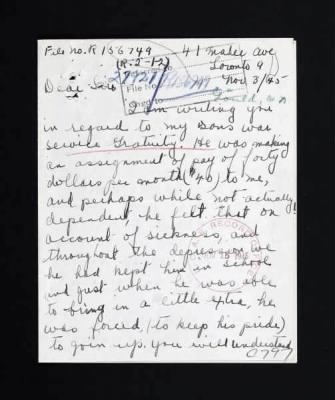 File no. R 156749
41 Malee Ave
(R-2-12)
Toronto 9
Nov 3/45
File No.
Dear Sir
I am writing you
in regard to my Sons war
service Gratuity. He was making
an assignment of pay of forty
dollars per month ($40) to me,
and perhaps while not actually
dependent he felt that on
account of sickness, and
throughout the depression we
had kept him in school
and just when he was able
to bring in a little extra, he
was forced, (to keep his pride)
to join up. You will understand
C797